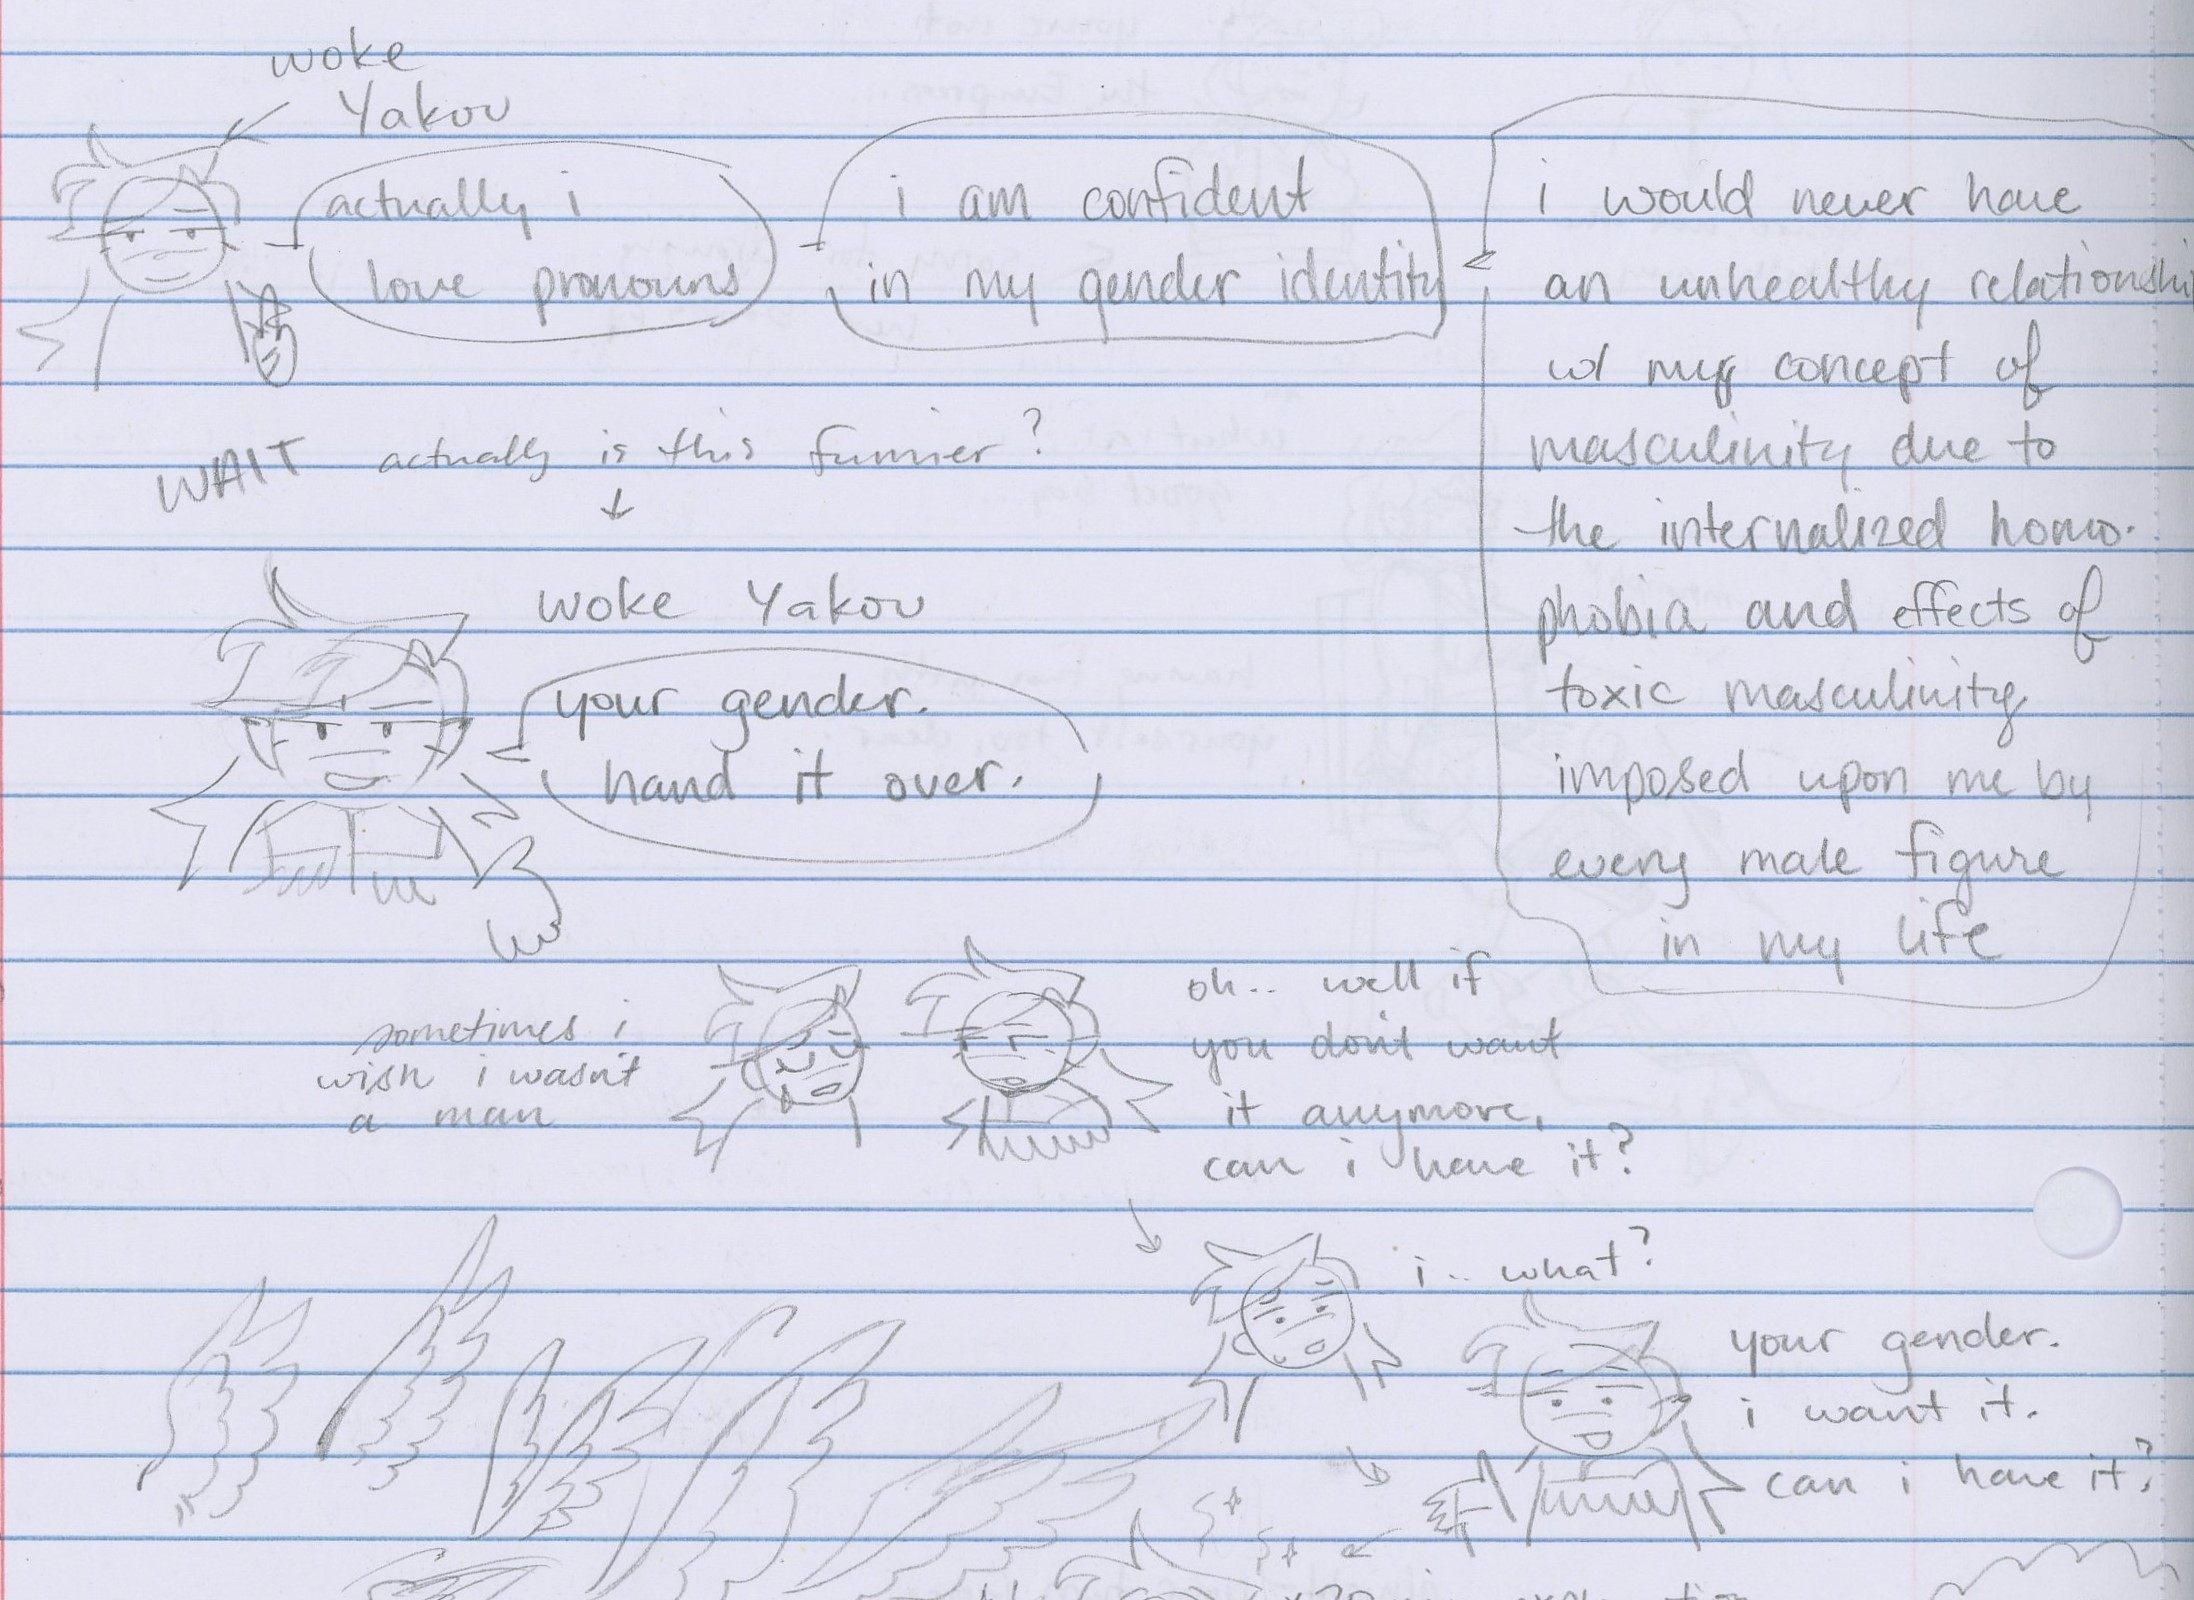 woke
Yakov
actually i
love pronouns
i am confident
in my gender identity
i would never have
an unhealthy relationshi
w/ my concept of
masculinity due to
the internalized homo-
phobia and effects of
toxic masculinity
imposed upon me by
every male figure
in my life
WAIT actually is this funnier?
woke Yakov
your gender.
hand it over.
sometimes i
wish i wasn't
a man
oh.. well if
you don't want
it anymore,
can i have it?
i.. what?
your gender.
i want it.
can i have it?